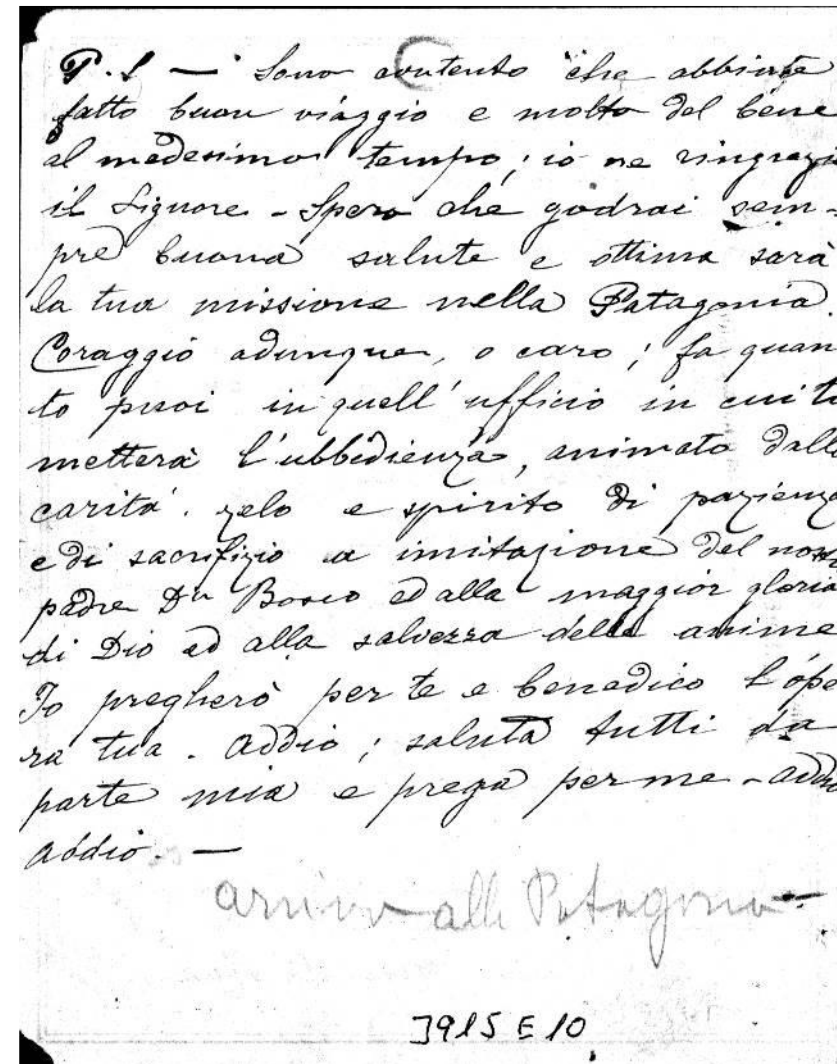 P.S — Sono contento che abbiate
fatto buon viaggio e molto del bene
al medesimo tempo; io ne ringrazio
il Signore - Spero che godrai sem-
pre buona salute e ottima sarà
la tua missione nella Patagonia.
Coraggio adunque, o caro; fa quan
to puoi in quell'ufficio in cui ti
metterà l'ubbidienza, animato dalla
carità. zelo e spirito di pazienza
e di sacrifizio a imitazione del nostro
padre Dn Bosco ed alla maggior gloria
di Dio ed alla salvezza delle anime
Io pregherò per te e benedico l'ope
ra tua. Addio; saluta tutti da
parte mia e prega per me - addio
addio. —
arrivo alla Patagonia -
3915 E 10